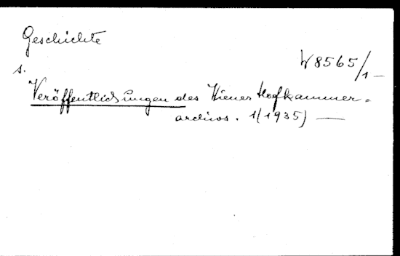 Geschichte
W 8565/1-
s.
Veröffentlichungen des Wiener Hofkammer-
archivs. 1(1935) —